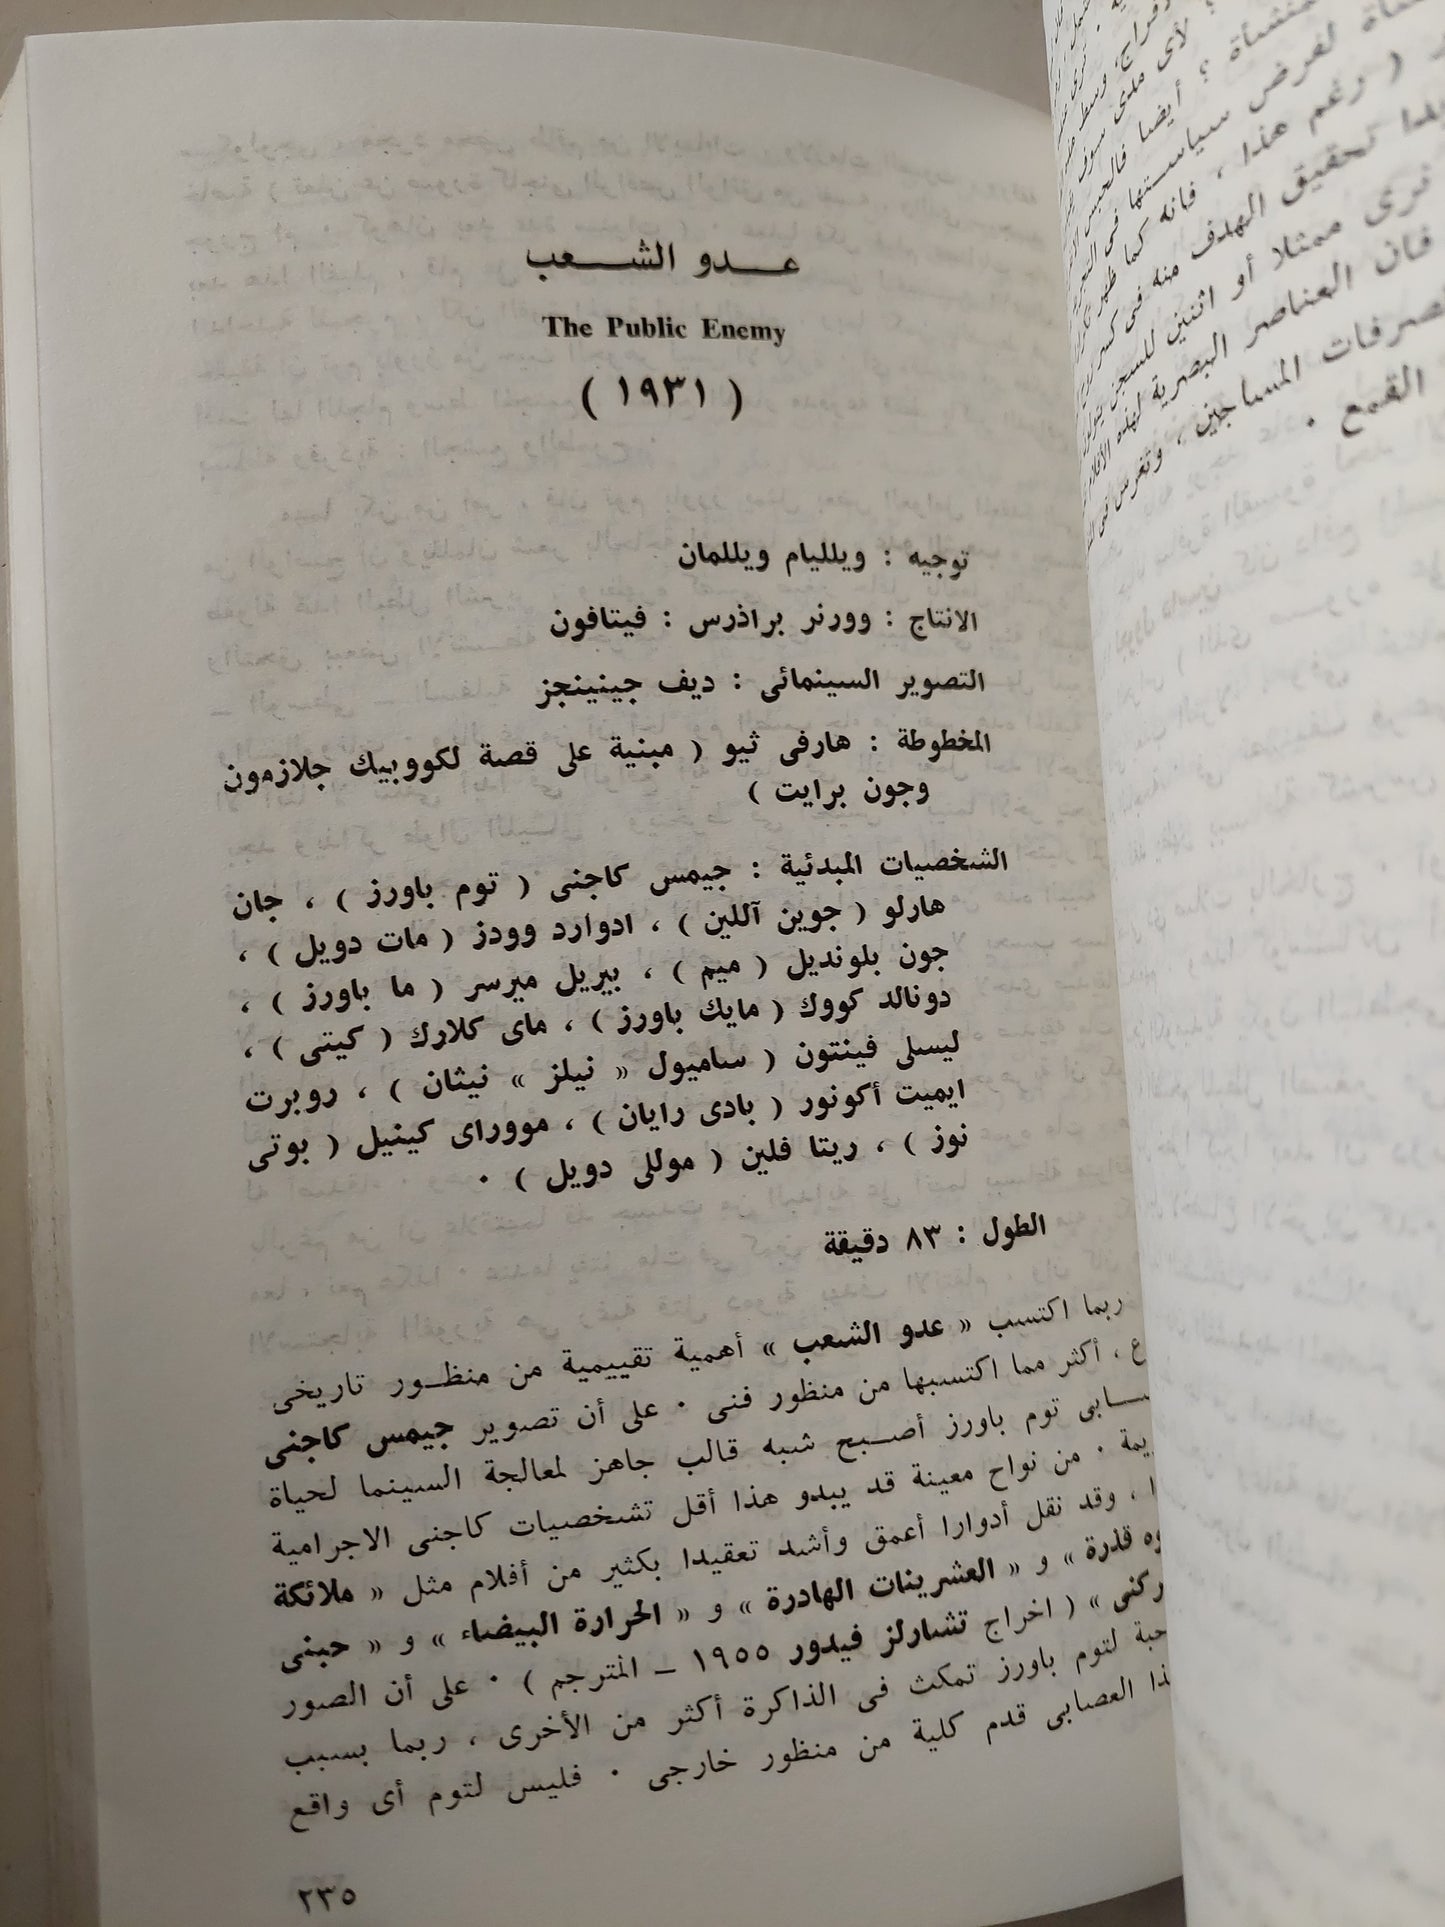 عـــدو الشـــعب
The Public Enemy
( ١٩٣١ )
توجيه : ويلليام ويللمان
الانتاج : وورنر براذرس : فيتافون
التصوير السينمائى : ديف جينينجز
المخطوطة : هارفى ثيو ( مبنية على قصة لكووبيك جلازمون
وجون برايت )
الشخصيات المبدئية : جيمس كاجنى ( توم باورز ) ، جان
هارلو ( جوين آللين ) ، ادوارد وودز ( مات دويل ) ،
جون بلونديل ( ميم ) ، بيريل ميرسر ( ما باورز ) ،
دونالد كووك ( مايك باورز ) ، ماى كلارك ( كيتى ) ،
ليسلى فينتون ( ساميول « نيلز » نيثان ) ، روبرت
ايميت أكونور ( بادى رايان ) ، مووراى كينيل ( بوتى
نوز ) ، ريتا فلين ( موللى دويل ) ٠
الطول : ٨٣ دقيقة
ربما اكتسب « عدو الشعب » أهمية تقييمية من منظــور تاريخى
ع ، أكثر مما اكتسبها من منظور فنى ٠ على أن تصوير جيمس كاجنى
ـــابى توم باورز أصــبح شبه قالب جاهز لمعالجة السينما لحياة
يمة ٠ من نواح معينة قد يبدو هذا أقل تشخصيات كاجنى الاجرامية
ا ، وقد نقل أدوارا أعمق وأشد تعقيدا بكثير من أفلام مثل « ملائكة
وه قذرة » و « العشرينات الهادرة » و « الحرارة البيضاء » و « حبنى
ركنى » ( اخراج تشارلز فيدور ١٩٥٥ – المترجم ) ٠ على أن الصور
حبة لتوم باورز تمكث فى الذاكرة أكثر من الأخرى ، ربما بسبب
ذا العصابى قدم كلية من منظور خارجى ٠ فليس لتوم أى واقع
٢٣٥
منشأة ؟ أيضا فالحبس
لغرض سياستها فى
( رغم هذا ، فانه كما ظهر
تحقيق الهدف منه فى
نرى ممثلا أو اثنين للسجن
فان العناصر البصرية لهذه
المساجين ، وتغرس فى
القمع ٠